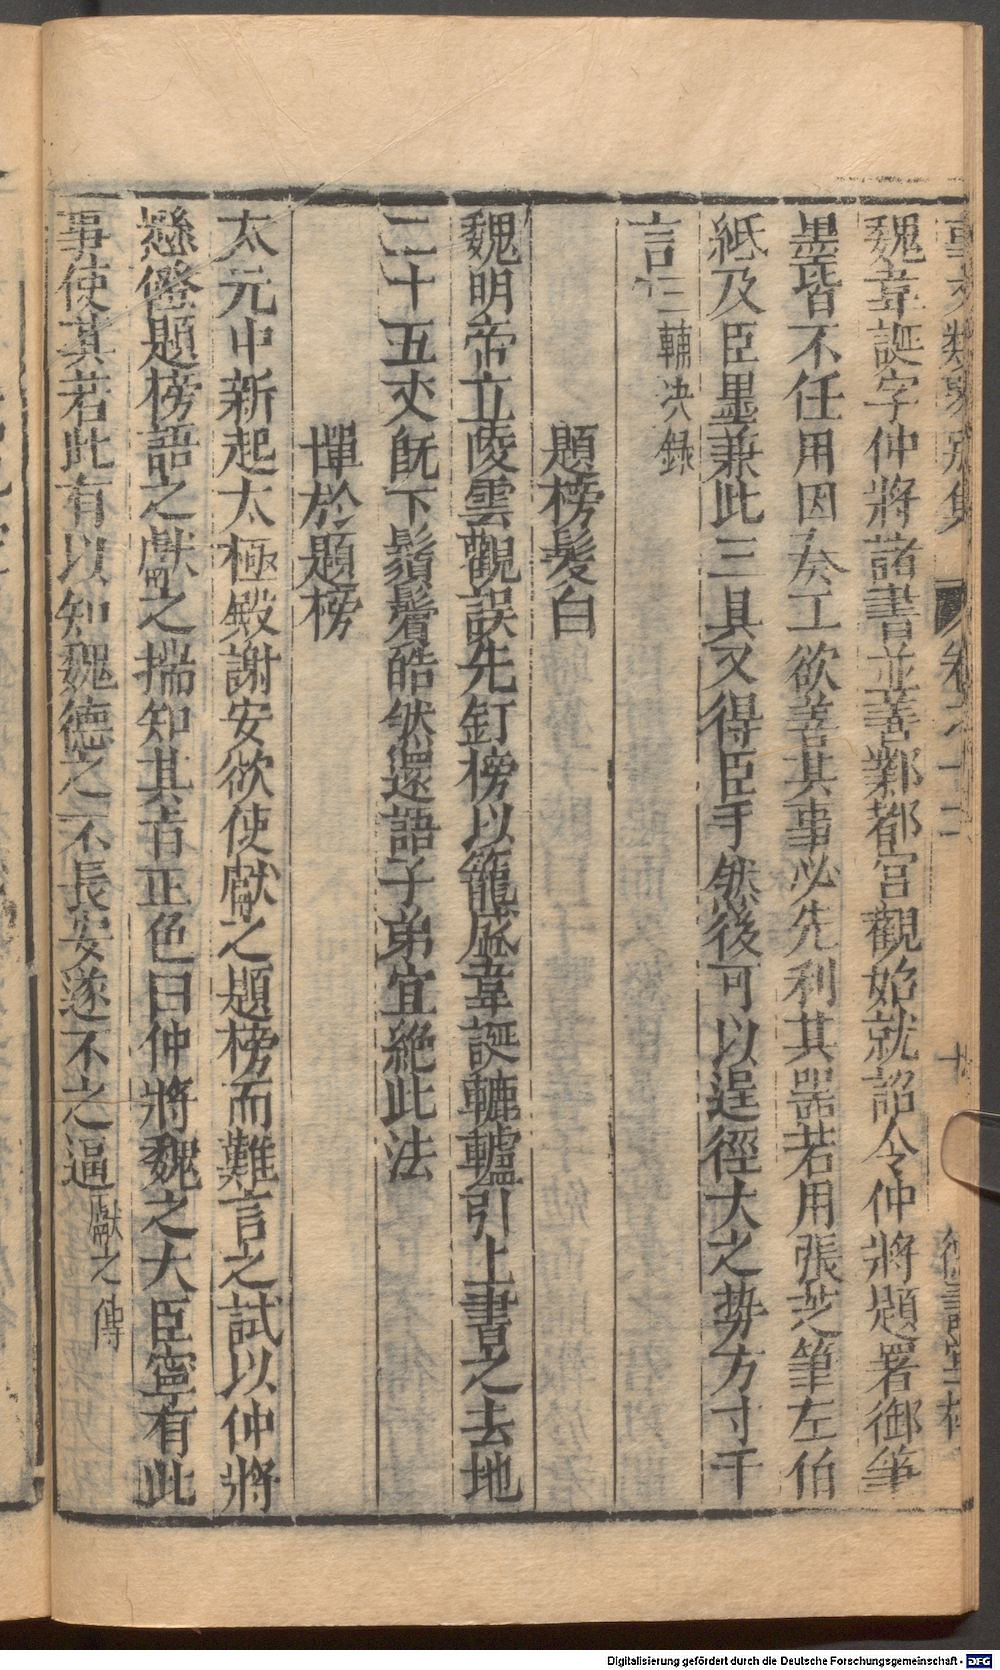 事文類聚別集 卷之十二 十 德壽堂梓
魏韋誕字仲將諸書並善鄴都宮觀始就詔令仲將題署御筆
墨皆不任用因奏工欲善其事必先利其器若用張芝筆左伯
紙及臣墨兼此三具又得臣手然後可以逞徑大之勢方寸千
言 三輔決録
題榜髮白
魏明帝立陵雲觀誤先釘榜以籠盛韋誕轆轤引上書之去地
二十五丈既下鬚鬢皓然還語子弟宜絶此法
憚於題榜
太元中新起太極殿謝安欲使獻之題榜而難言之試以仲將
懸凳題榜語之獻之揣知其旨正色曰仲將魏之大臣寧有此
事使其若此有以知魏德之不長安遂不之逼 獻之傳
Digitalisierung gefördert durch die Deutsche Forschungsgemeinschaft - DFG